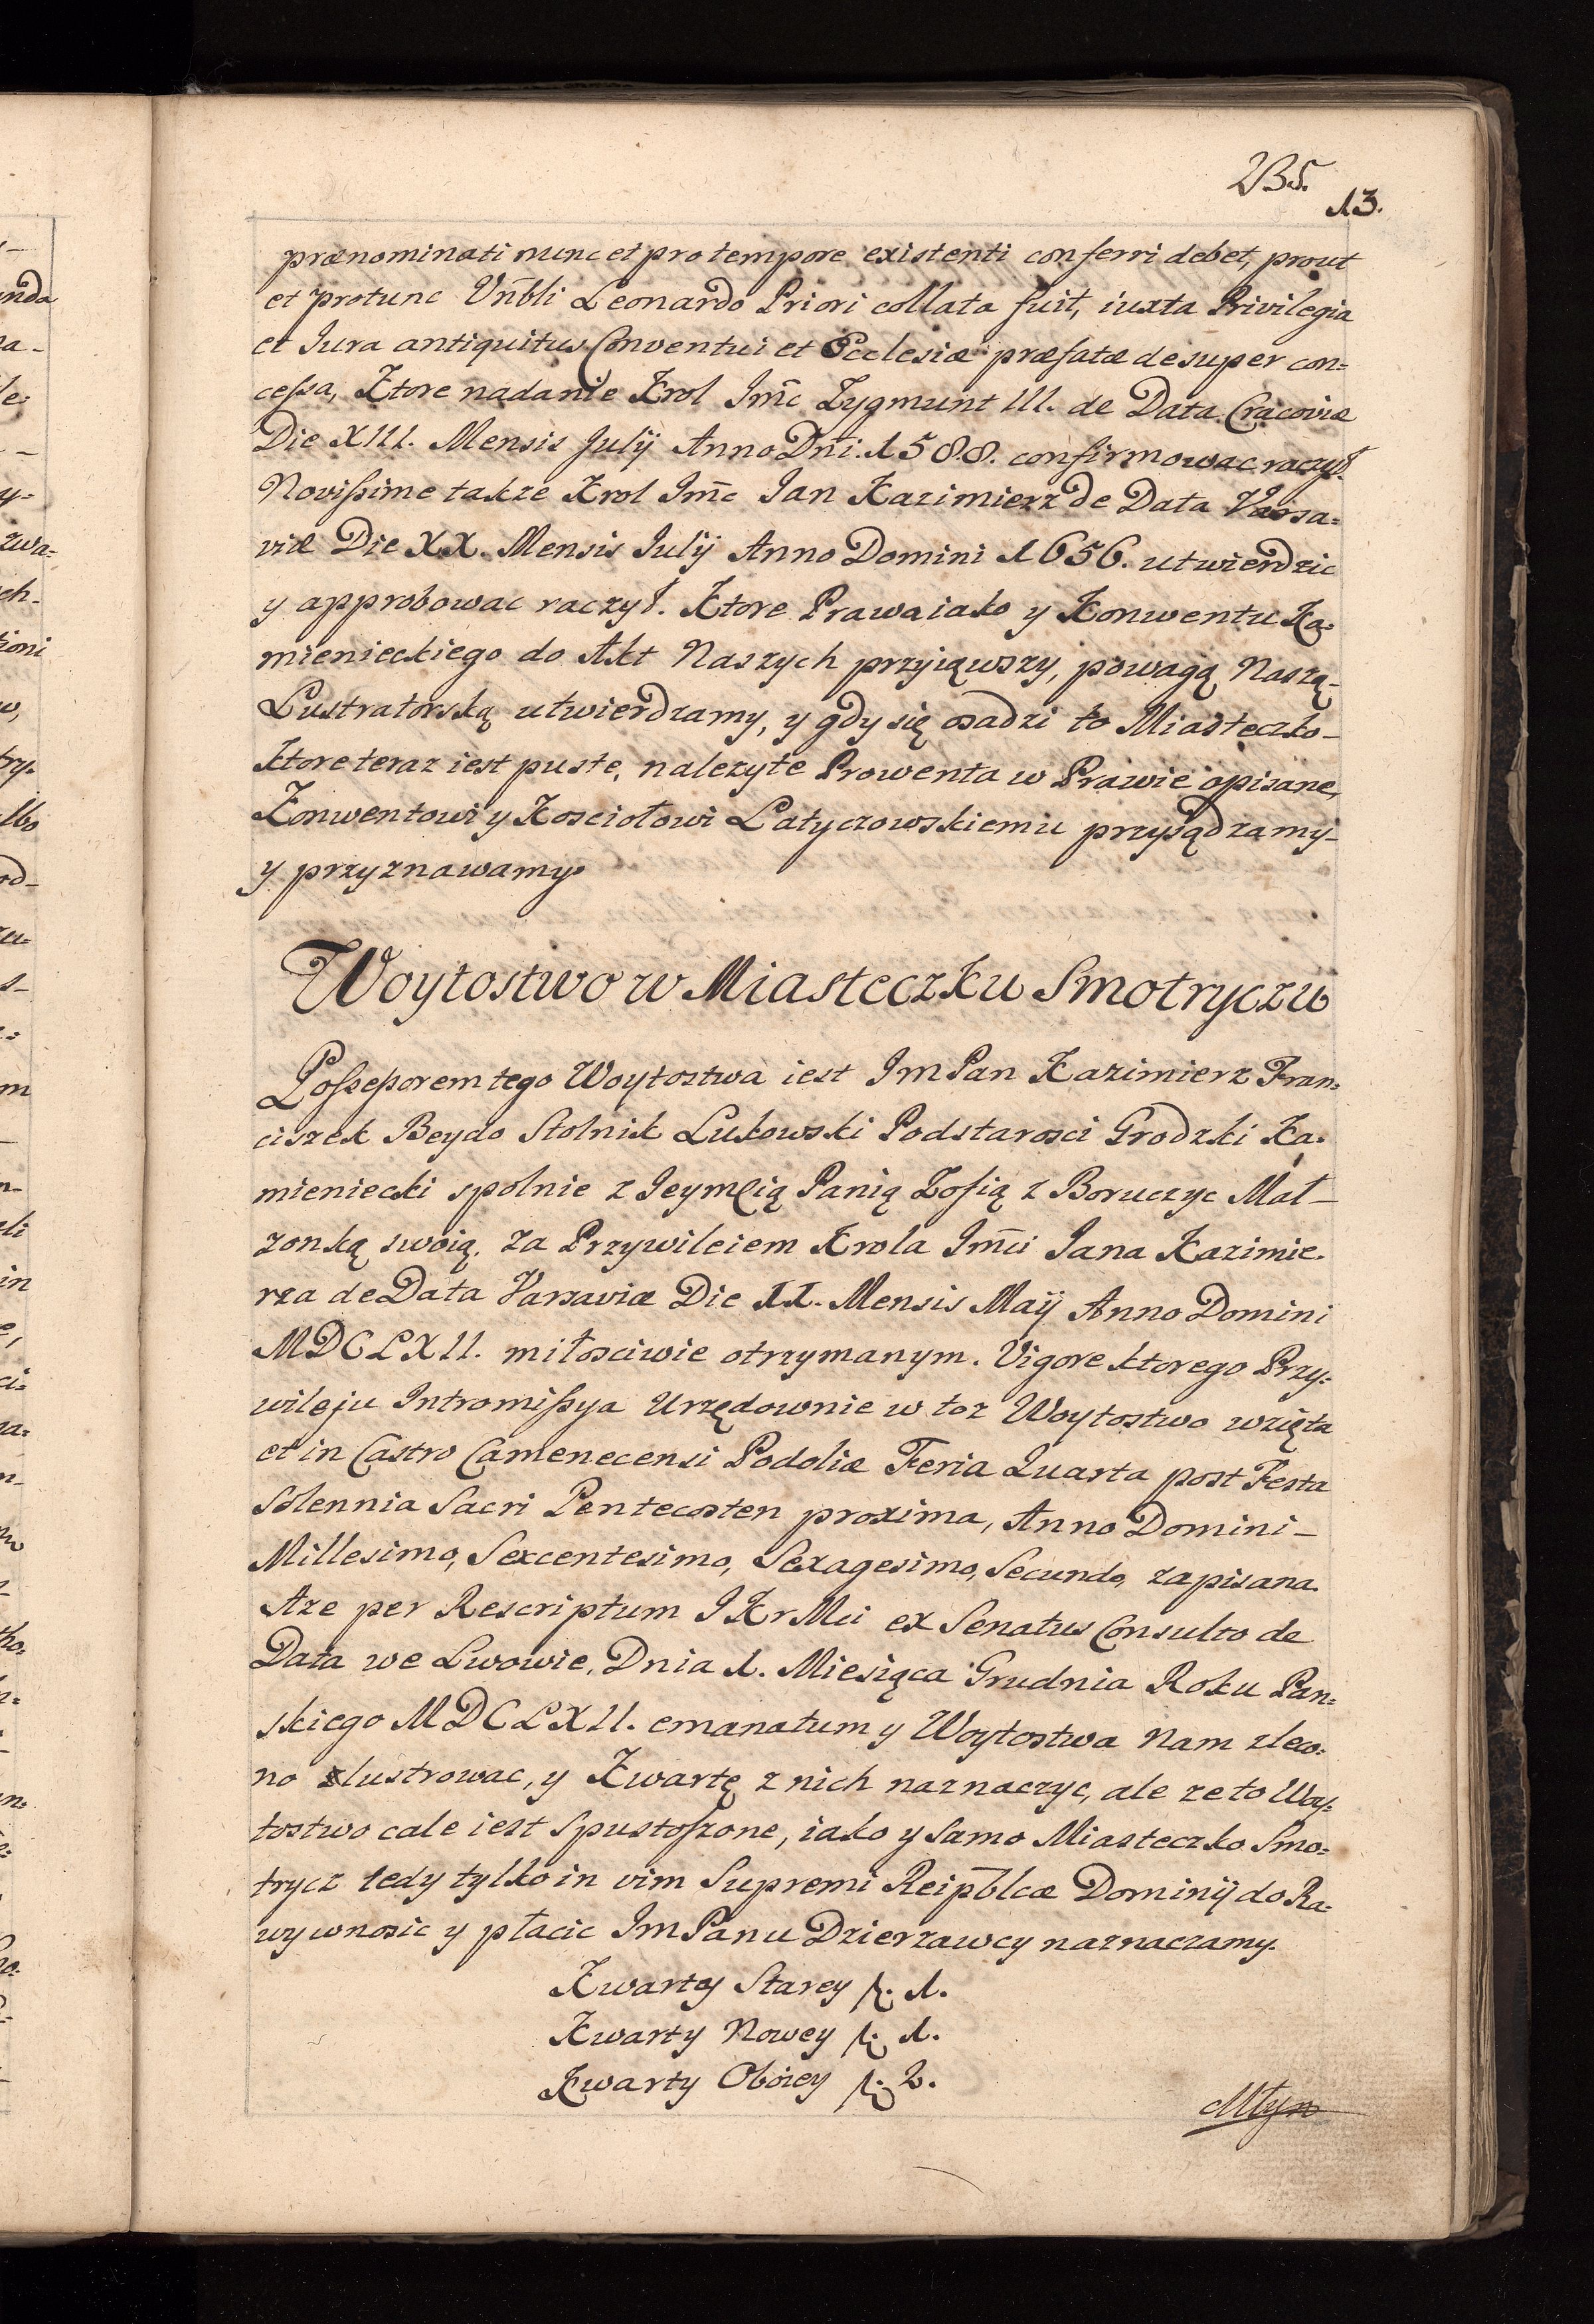 235.
13.
prænominati nunc et pro tempore existenti conferri debet, prout
et protunc Vn̄bli Leonardo Priori collata fuit, iuxta Privilegia
et Jura antiquitus Conventui et Ecclesiæ præfatæ desuper con=
cessa, Ktore nadanie Krol Jm̄c Zygmunt III. de Data Cracoviæ
Die XIII. Mensis Julij Anno Dn̄i. 1588. confirmowac raczył.
Novissime takze Krol Jm̄c Jan Kazimierz de Data Varsa=
viæ Die XX. Mensis Julij Anno Domini 1656. utwierdzic
y approbowac raczył. Ktore Prawa iako y Konwentu Ka=
mienieckiego do Akt Naszych przyiąwszy, powagą Naszą
Lustratorską utwierdzamy, y gdy się osadzi to Miasteczko
ktore teraz iest puste, nalezyte Prowenta w Prawie opisane,
Konwentowi y Kosciołowi Latyczowskiemu przysądzamy
y przyznawamy.
Woytostwo w Miasteczku Smotryczu
Possessorem tego Woytostwa iest Jm Pan Kazimierz Fran=
ciszek Beydo Stolnik Lukowski Podstarosci Grodzki Ka=
mieniecki spolnie z Jeymcią Panią Zofią z Boruczyc Mał
zonką swoią. Za Przywileiem Krola Jm̄ci Jana Kazimie=
rza de Data Varsaviæ Die II. Mensis Maij Anno Domini
MDCLXII. miłosciwie otrzymanym. Vigore ktorego Przy=
wileju Intromissya Urzędownie w toz Woytostwo wzięta
et in Castro Camenecensi Podoliæ Feria Quarta post Festa
Solennia Sacri Pentecosten proxima, Anno Domini
Millesimo, Sexcentesimo, Sexagesimo, Secundo, zapisana.
Aze per Rescriptum J Kr Mci ex Senatus Consulto de
Data we Lwowie, Dnia 1. Miesiąca Grudnia Roku Pan=
skiego MDCLXII. emanatum y Woytostwa Nam zleco=
no zlustrowac, y Kwartę z nich naznaczyc, ale ze to Woy=
tostwo cale iest Spustoszone, iako y Samo Miasteczko Smo=
trycz tedy tylko in vim Supremi Reip̄blcæ Dominij do Ra=
wy wnosic y płacic Jm Panu Dzierzawcy naznaczamy.
Kwarty Starey f. 1.
Kwarty Nowey f. 1.
Kwarty Oboiey f. 2.
Młyn